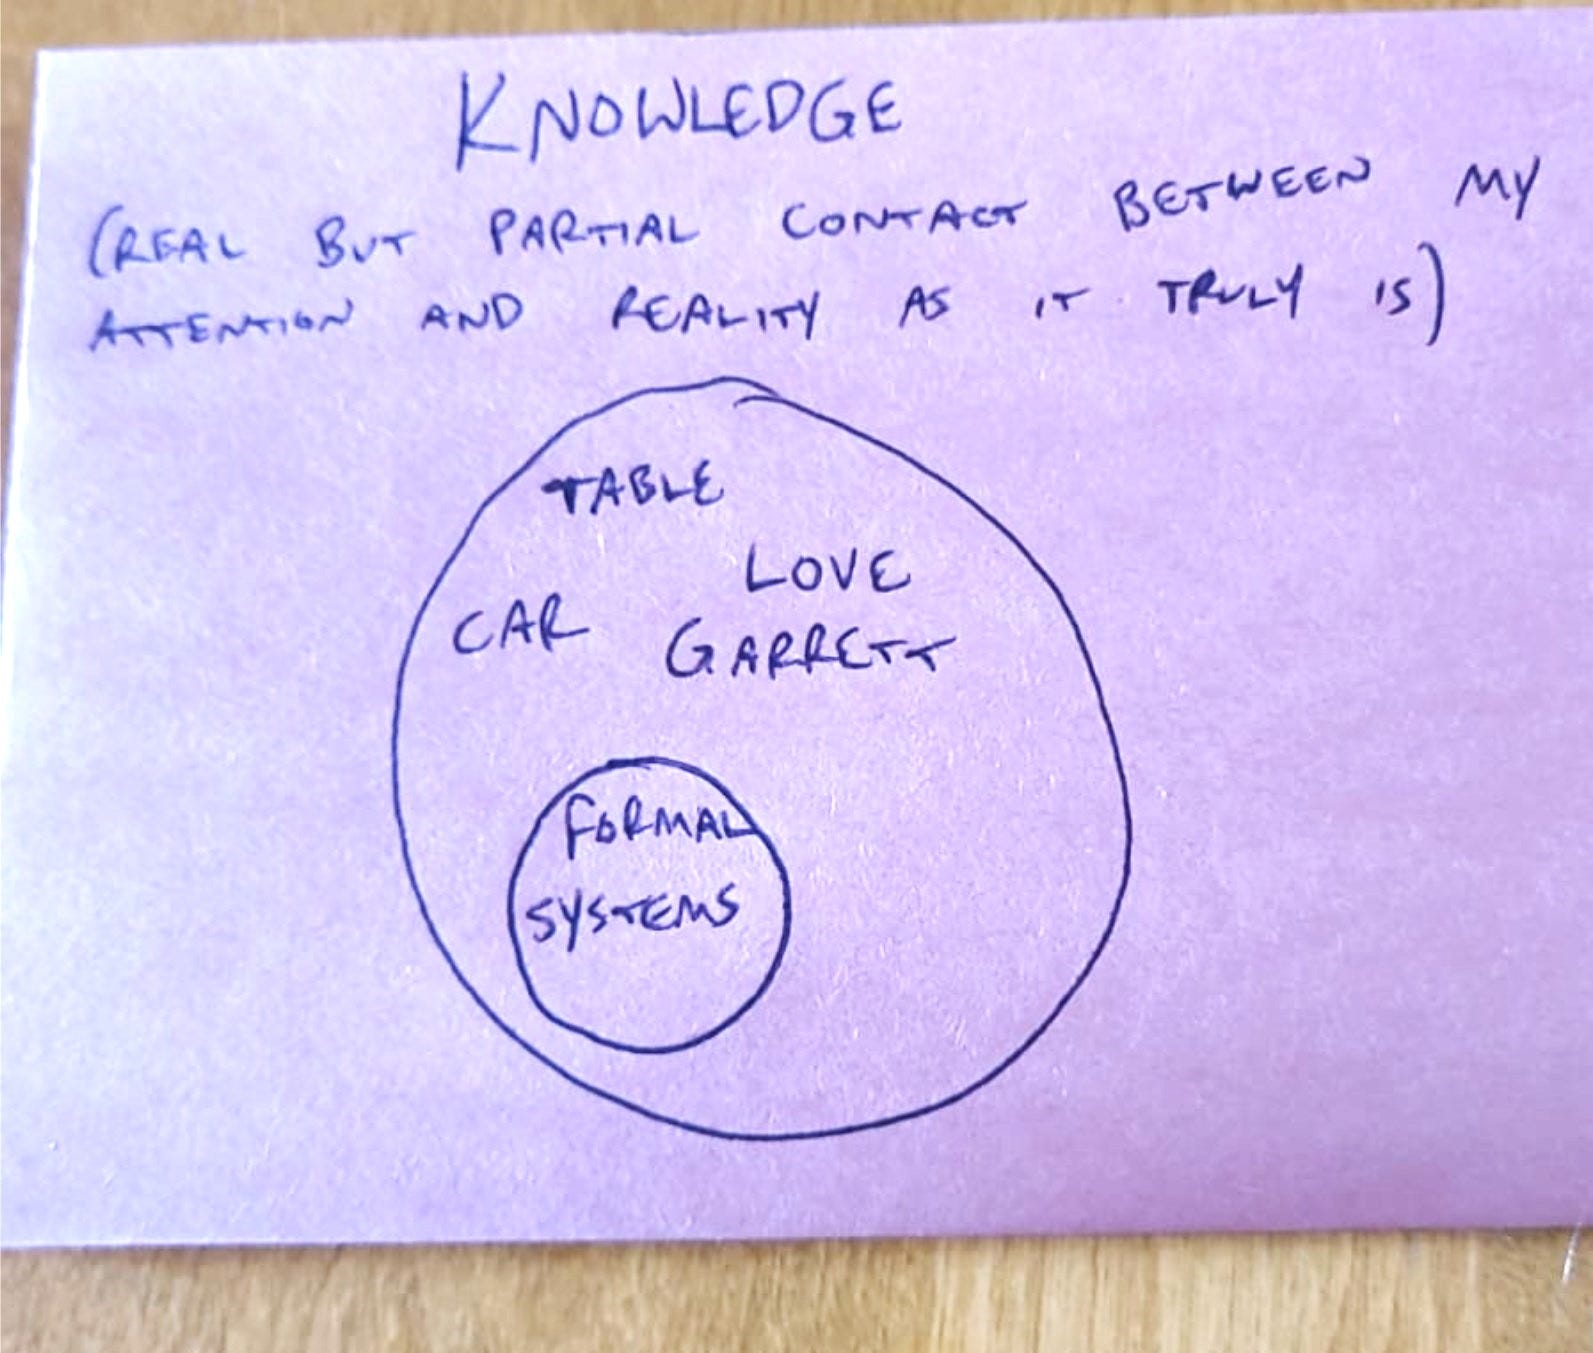 KNOWLEDGE
(REAL BUT PARTIAL CONTACT BETWEEN MY
ATTENTION AND REALITY AS IT TRULY IS)
TABLE
LOVE
CAR GARRETT
FORMAL
SYSTEMS